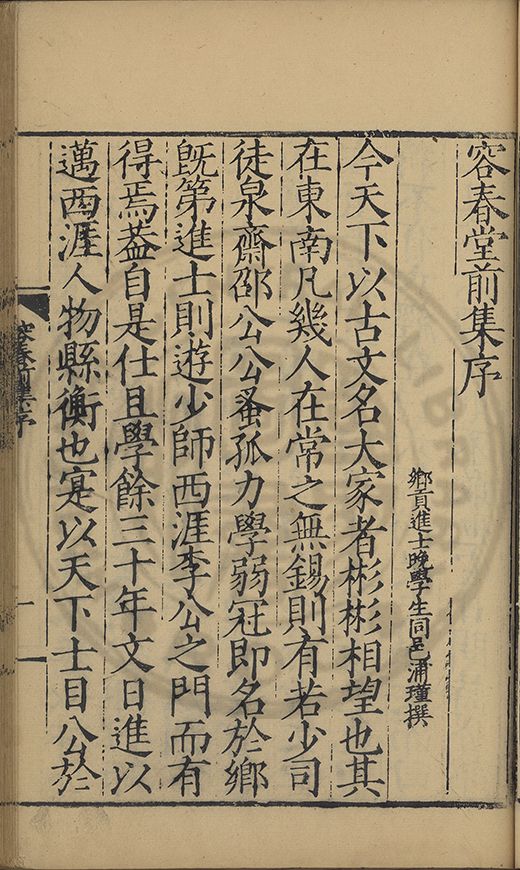 容春堂前集序
鄉貢進士晚學生同邑浦瑾撰
今天下以古文名大家者彬彬相望也其
在東南凡幾人在常之無錫則有若少司
徒泉齋邵公公蚤孤力學弱冠即名於鄉
既第進士則遊少師西涯李公之門而有
得焉葢自是仕且學餘三十年文日進以
邁西涯人物縣衡也寔以天下士目公於
容春前集序
一